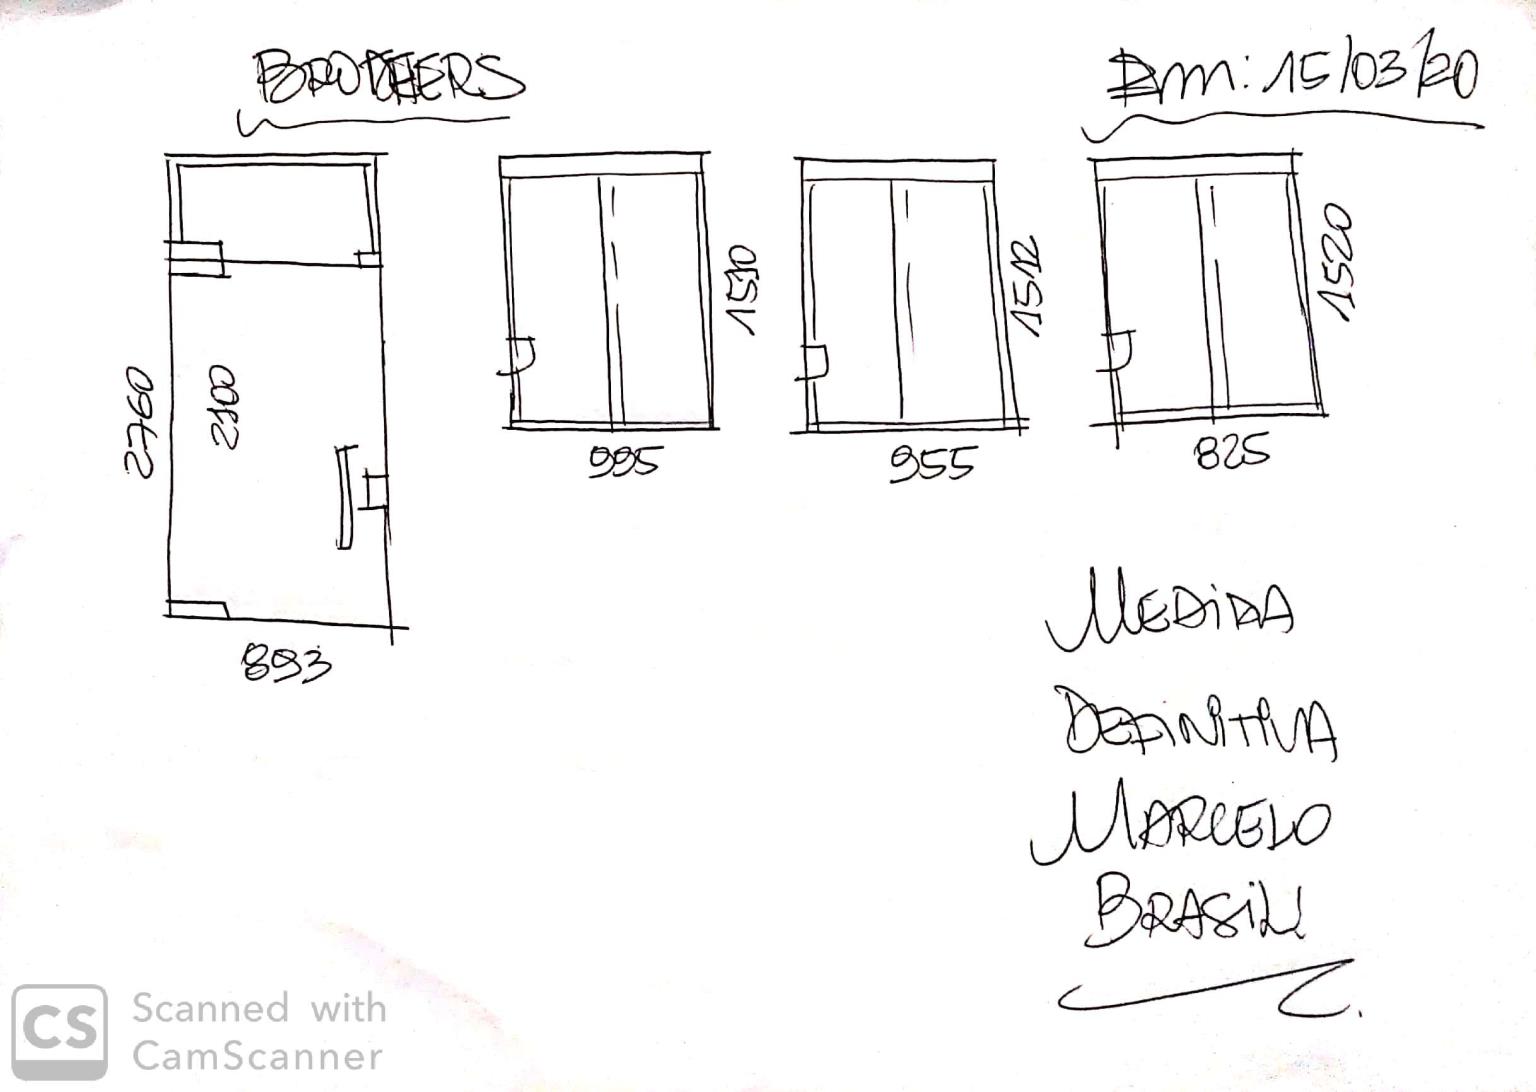 BROTHERS
Em: 15/03/20
2760
2100
893
995
1510
955
1512
825
1520
MEDIDA
DEFINITIVA
MARCELO
BRASIL
CS
Scanned with
CamScanner